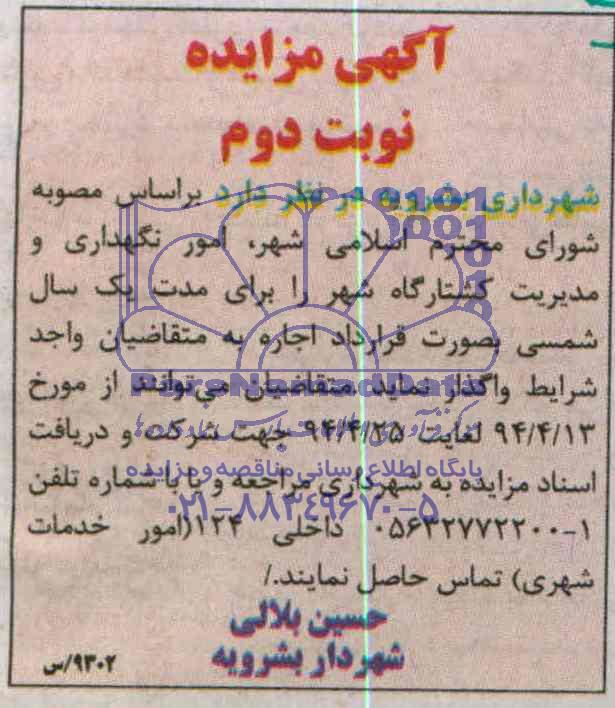 آگهی مزایده
نوبت دوم
شهرداری بشرویه در نظر دارد براساس مصوبه
شورای محترم اسلامی شهر، امور نگهداری و
مدیریت کشتارگاه شهر را برای مدت یک سال
شمسی بصورت قرارداد اجاره به متقاضیان واجد
شرایط واگذار نماید. متقاضیان می‌توانند از مورخ
۹۴/۴/۱۳ لغایت ۹۴/۴/۲۵ جهت شرکت و دریافت
پایگاه اطلاع رسانی مناقصه و مزایده
اسناد مزایده به شهرداری مراجعه و یا با شماره تلفن
۰۲۱-۸۸۳۴۹۶۷۰-۵
۰۵۶۳۲۷۷۲۲۰۰-۱ داخلی ۱۲۴(امور خدمات
شهری) تماس حاصل نمایند./
حسین بلالی
شهردار بشرویه
۹۳۰۲/س